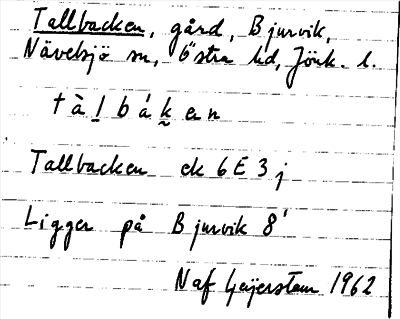 Tallbacken, gård, Bjurvik,
Nävelsjö sn, Östra hd, Jönk. l.
tàlbáken
Tallbacken ek 6E3j
Ligger på Bjurvik 8¹
N af Geijerstam 1962